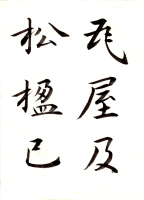 瓦屋及
松楹已